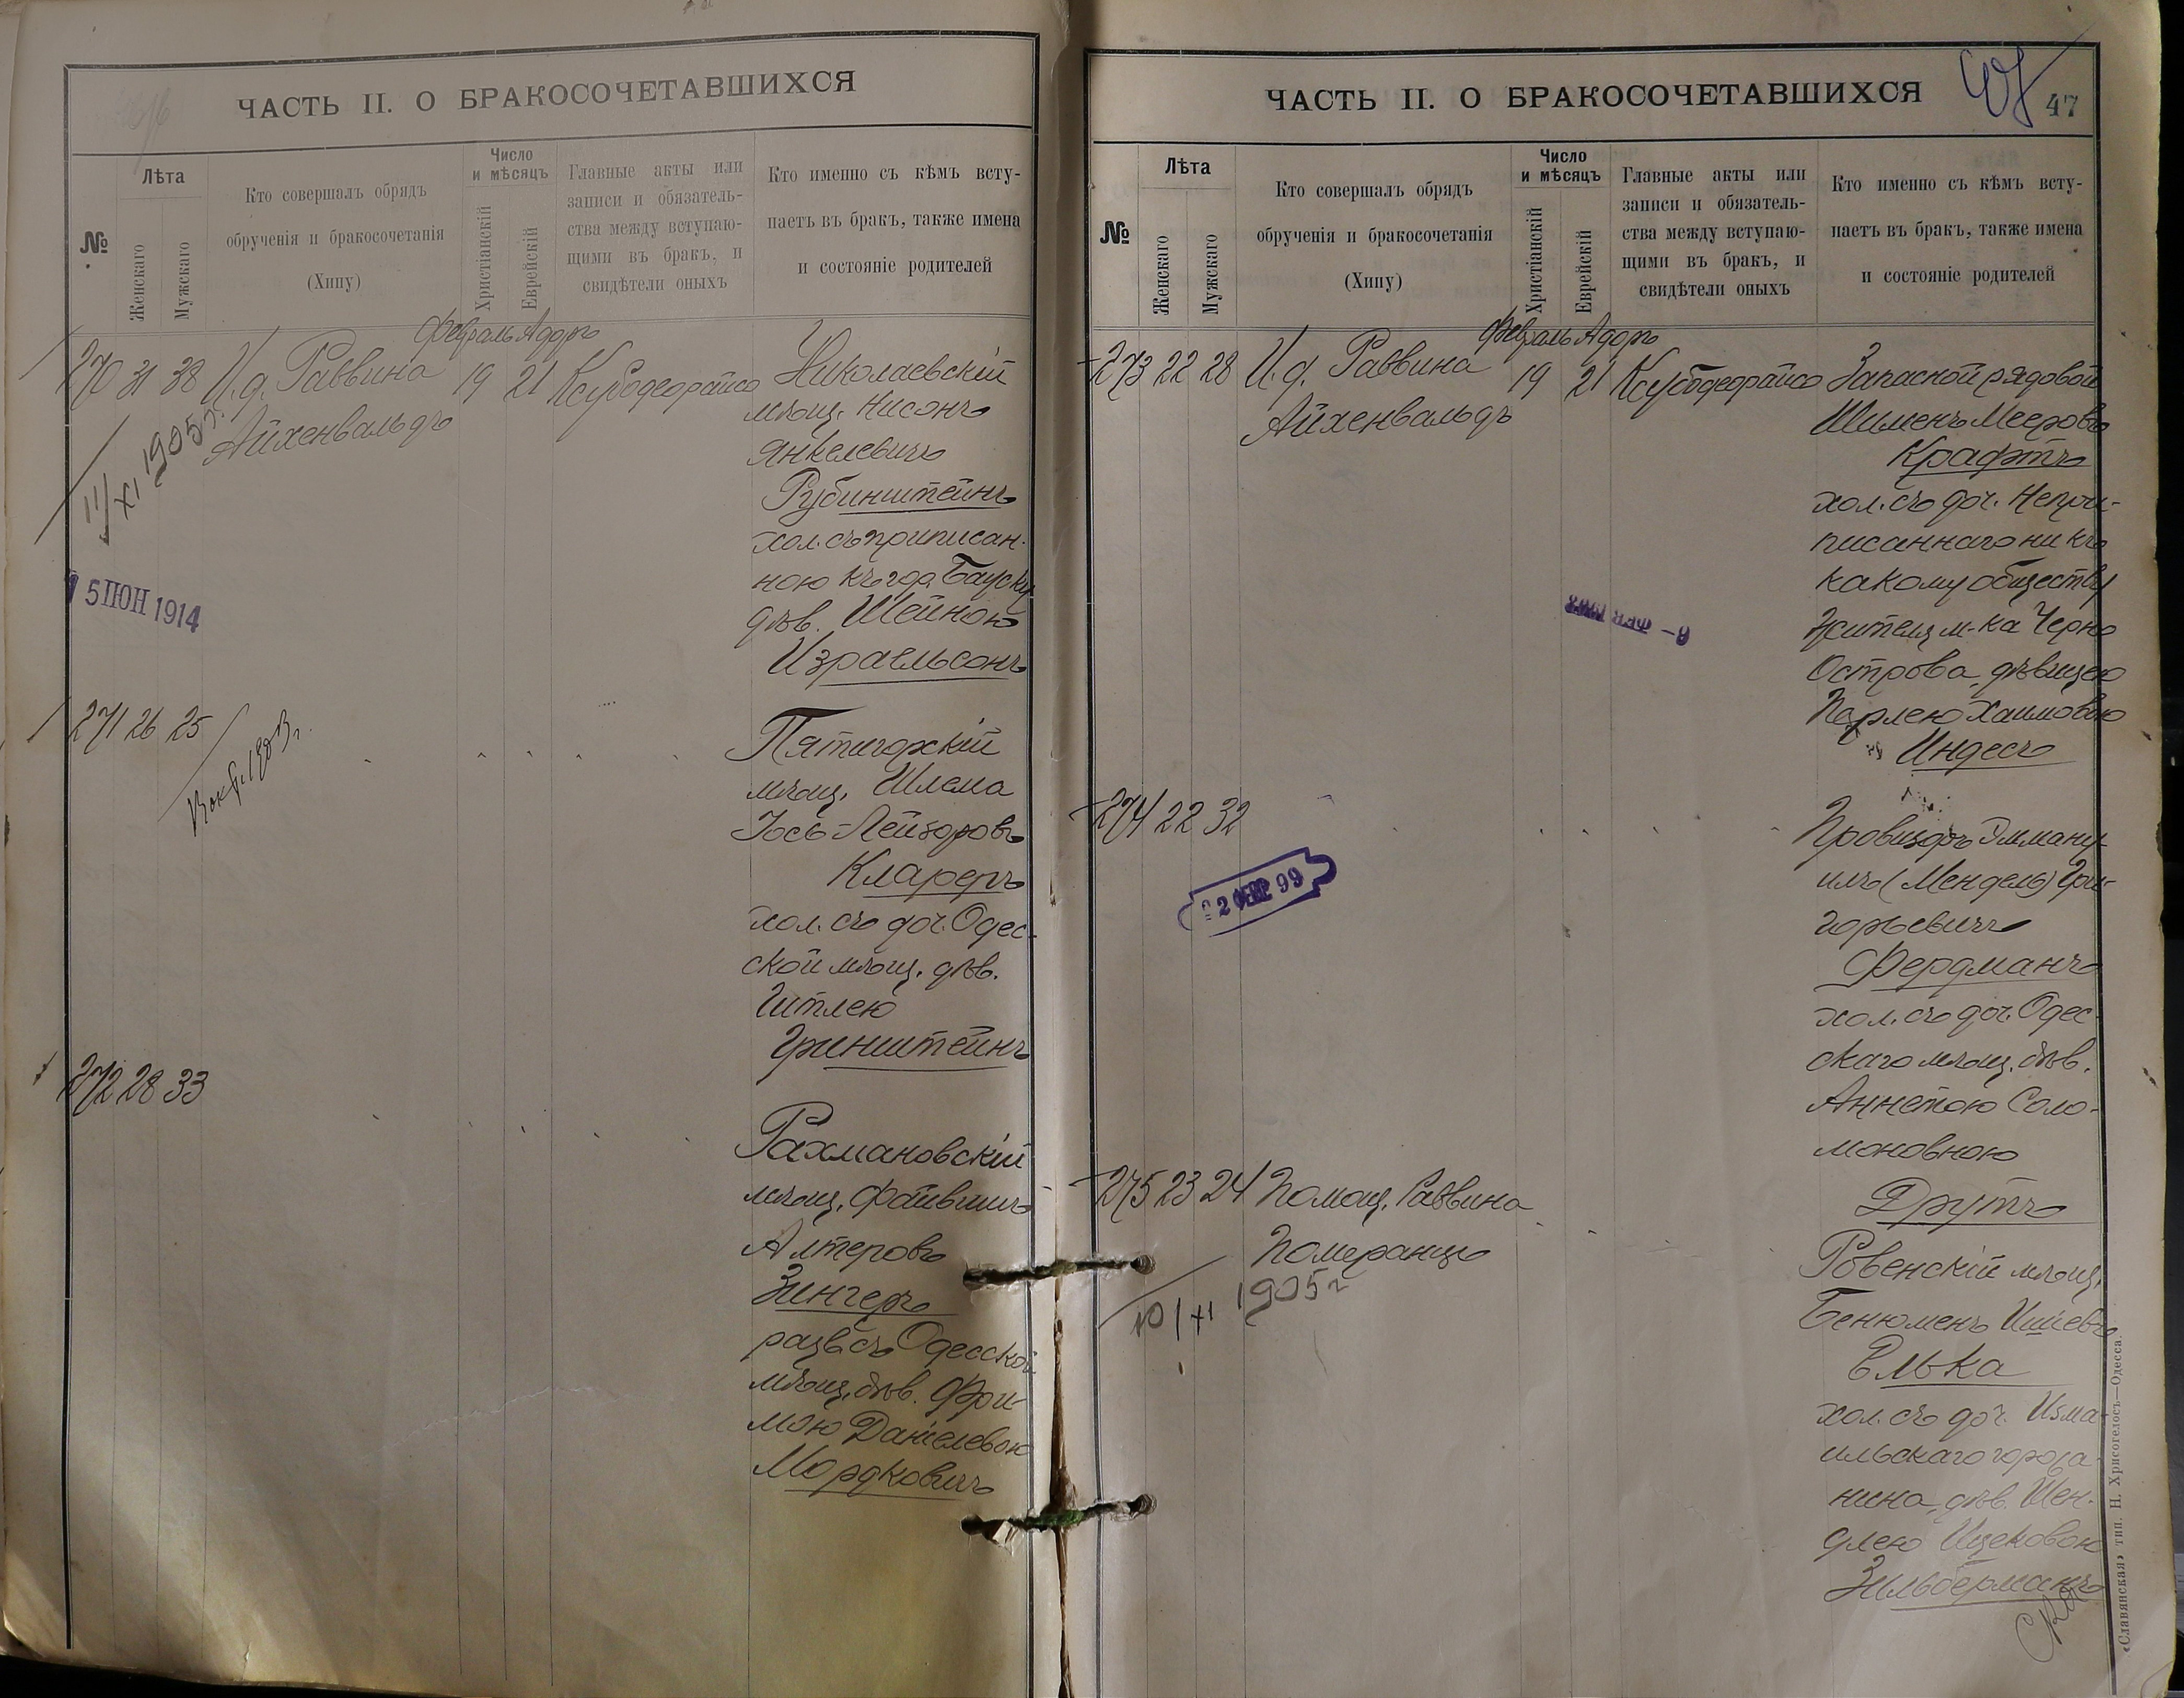 ЧАСТЬ II. О БРАКОСОЧЕТАВШИХСЯ
№
Лѣта
Женскаго
Мужскаго
Кто совершалъ обрядъ
обрученія и бракосочетанія
(Хипу)
Число
и мѣсяцъ
Христіанскій
Еврейскій
Главные акты или
записи и обязатель-
ства между вступаю-
щими въ бракъ, и
свидѣтели оныхъ
Кто именно съ кѣмъ всту-
паетъ въ бракъ, также имена
и состояніе родителей
Февраль Адаръ
270 31 38 И.д. Раввина 19 21
Айхенвальдъ
11/XI 1905 г.
5 ІЮН 1914
Николаевскій
мѣщ. Нисонъ
Янкелевичъ
Рубинштейнъ
хол. съ приписан-
ною къ гор. Бауску
дѣв. Шейною
Израельсонъ
271 26 25
Пятигорскій
мѣщ. Шлема
Іось-Лейзоровъ
Клареръ
хол. съ доч. Одес-
ской мѣщ. дѣв.
Гитлею
Гринштейнъ
272 28 33
Рахмановскій
мѣщ. Файвишъ
Алтеровъ
Зингеръ
разв. съ Одесской
мѣщ. дѣв. Фри-
мою Даніелевою
Мордковичъ
ЧАСТЬ II. О БРАКОСОЧЕТАВШИХСЯ
47
№
Лѣта
Женскаго
Мужскаго
Кто совершалъ обрядъ
обрученія и бракосочетанія
(Хипу)
Число
и мѣсяцъ
Христіанскій
Еврейскій
Главные акты или
записи и обязатель-
ства между вступаю-
щими въ бракъ, и
свидѣтели оныхъ
Кто именно съ кѣмъ всту-
паетъ въ бракъ, также имена
и состояніе родителей
Февраль Адаръ
273 22 28 И.д. Раввина 19 21
Айхенвальдъ
Запасной рядовой
Шименъ Мееровъ
Крафтъ
хол. съ доч. Непри-
писаннаго ни къ
какому обществу
жителя м-ка Черно
Острова, дѣвицею
Перлею Хаимовою
Индесъ
274 22 32
Провизоръ Эмману-
илъ (Мендель) Гри-
горьевичъ
Фердманъ
хол. съ доч. Одес-
скаго мѣщ. дѣв.
Аннетою Соло-
моновною
Друтъ
275 23 24 Помощ. Раввина
Померанцъ
10/XI 1905 г
Ровенскій мѣщ.
Бенюменъ Ишіевъ
Елька
хол. съ доч. Изма-
ильскаго горожа-
нина, дѣв. Шен-
длею Ицековою
Зильберманъ
«Славянская» тип. Н. Хрисогелосъ—Одесса.